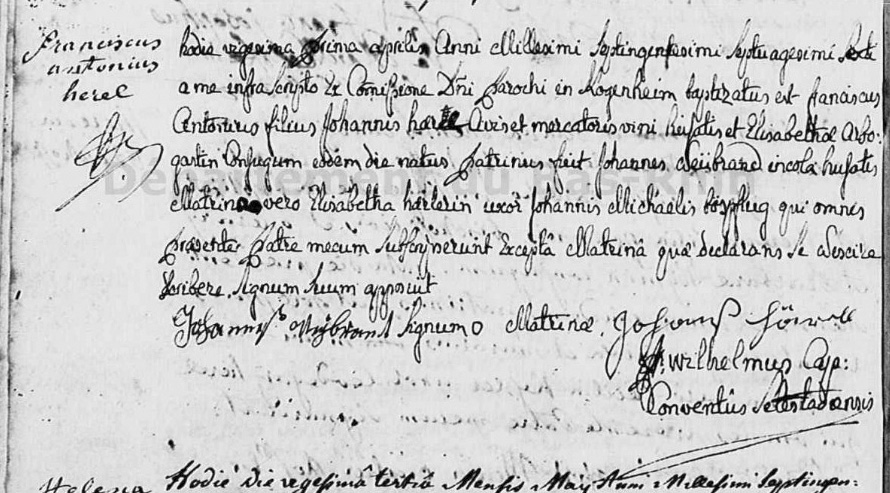 Franciscus
antonius
herel
hodie vigesima prima aprilis Anni Millesimi Septingentesimi Septuagesimi
a me infra Scripto Ex Comissione Dñi Parochi in Kogenheim baptizatus est franciscus
Antonius filius Johannis Civis et mercatoris vini hujatis et Elisabethæ Arbo-
gastin Conjugum eodem die natus patrinus fuit Johannes Weisbrand incola hujatis
Matrina vero Elisabetha härlerin uxor Johannis Michaelis qui omnes
præsente Patre mecum Subscripserunt Exceptâ Matrinâ quæ declarans se Nescire
Scribere Signum Suum apposuit
Johannes Signum o Matrinæ Johans
Wilhelmus Cap:
Conventûs Selestadiensis
Département du Bas-Rhin
Helena Hodie die vigesimâ tertiâ Mensis Maÿ Anni Millesimi Septingen: